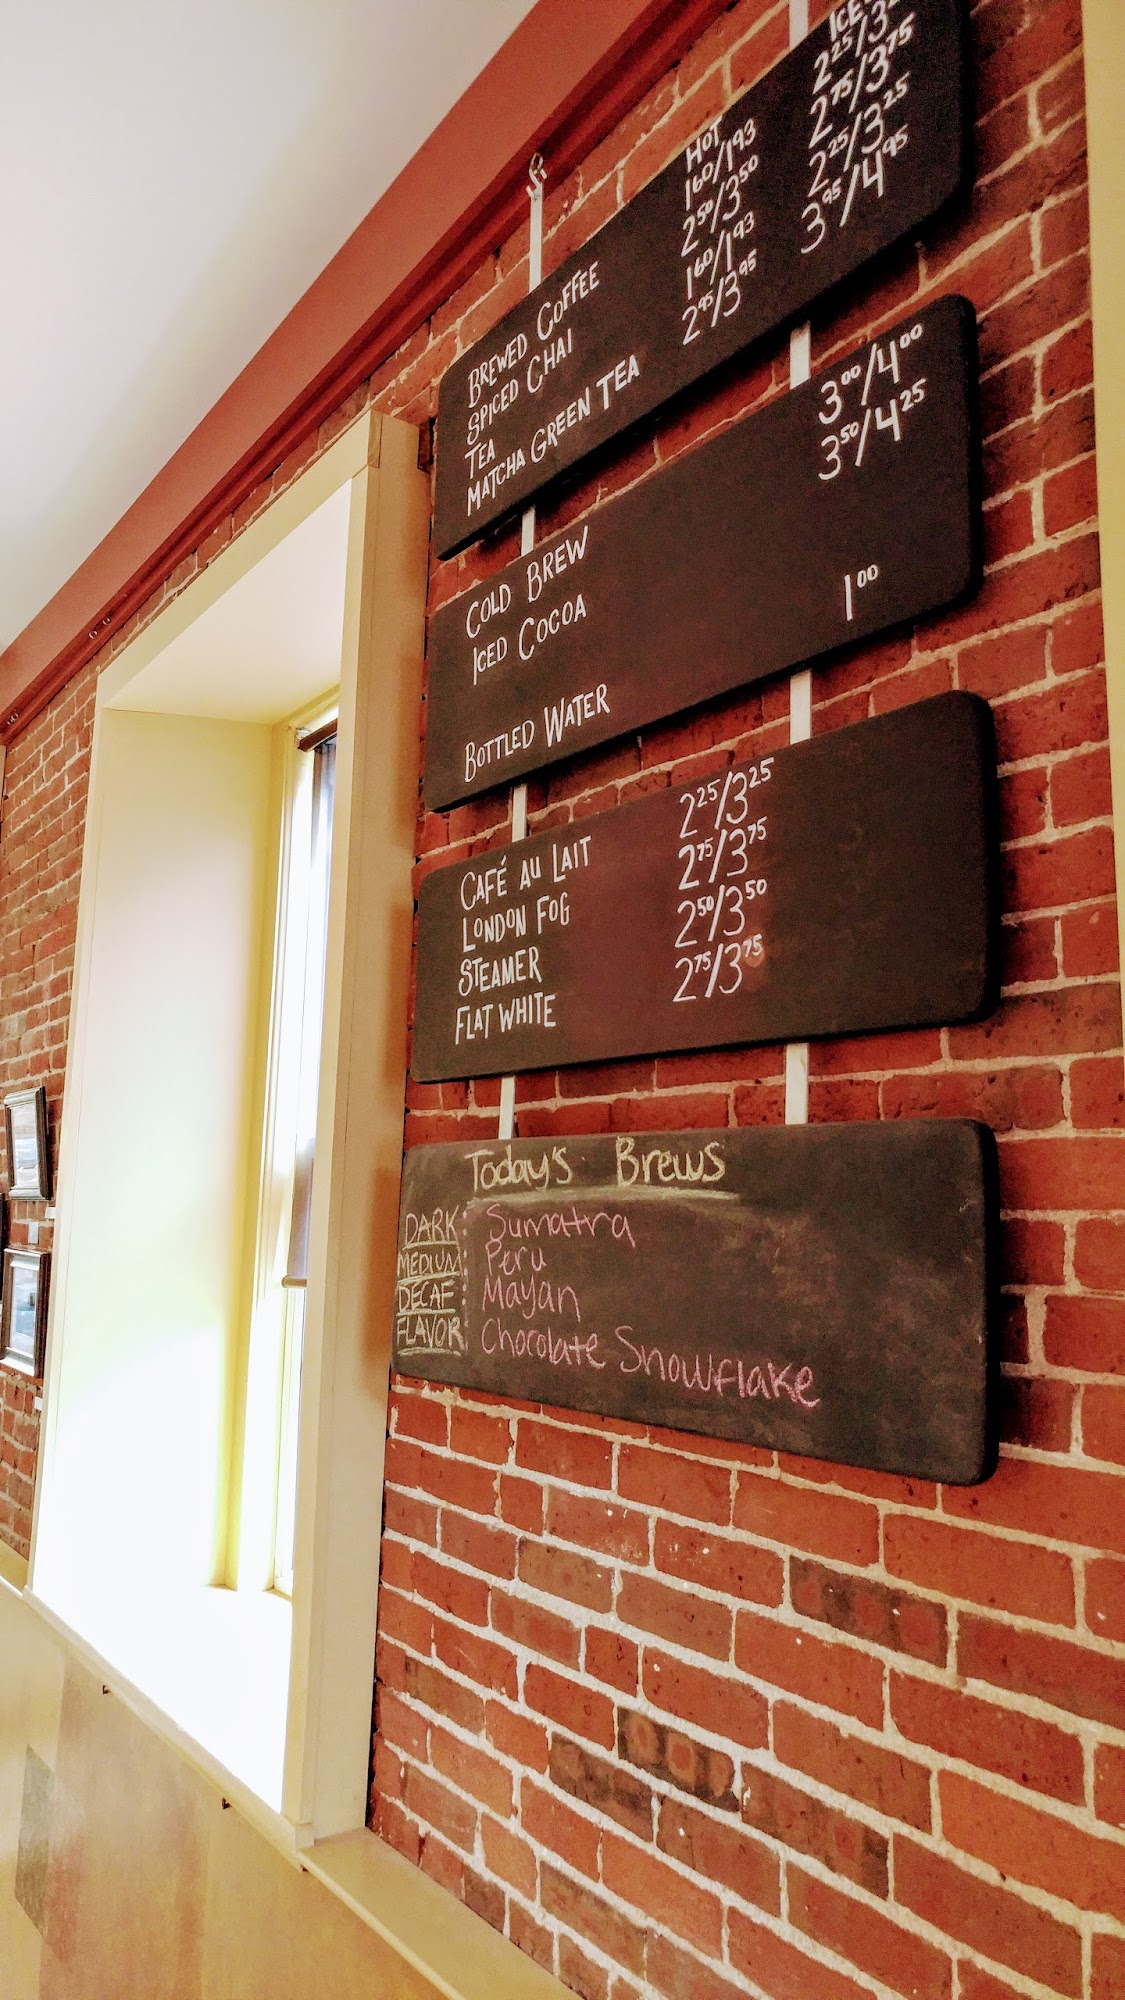 HOT ICED
BREWED COFFEE 1.60/1.93 2.25/3.2
SPICED CHAI 2.50/3.50 2.75/3.75
TEA 1.60/1.93 2.25/3.25
MATCHA GREEN TEA 2.95/3.95 3.95/4.95
COLD BREW 3.00/4.00
ICED COCOA 3.50/4.25
BOTTLED WATER 1.00
CAFÉ AU LAIT 2.25/3.25
LONDON FOG 2.75/3.75
STEAMER 2.50/3.50
FLAT WHITE 2.75/3.75
Today's Brews
DARK Sumatra
MEDIUM Peru
DECAF Mayan
FLAVOR Chocolate Snowflake